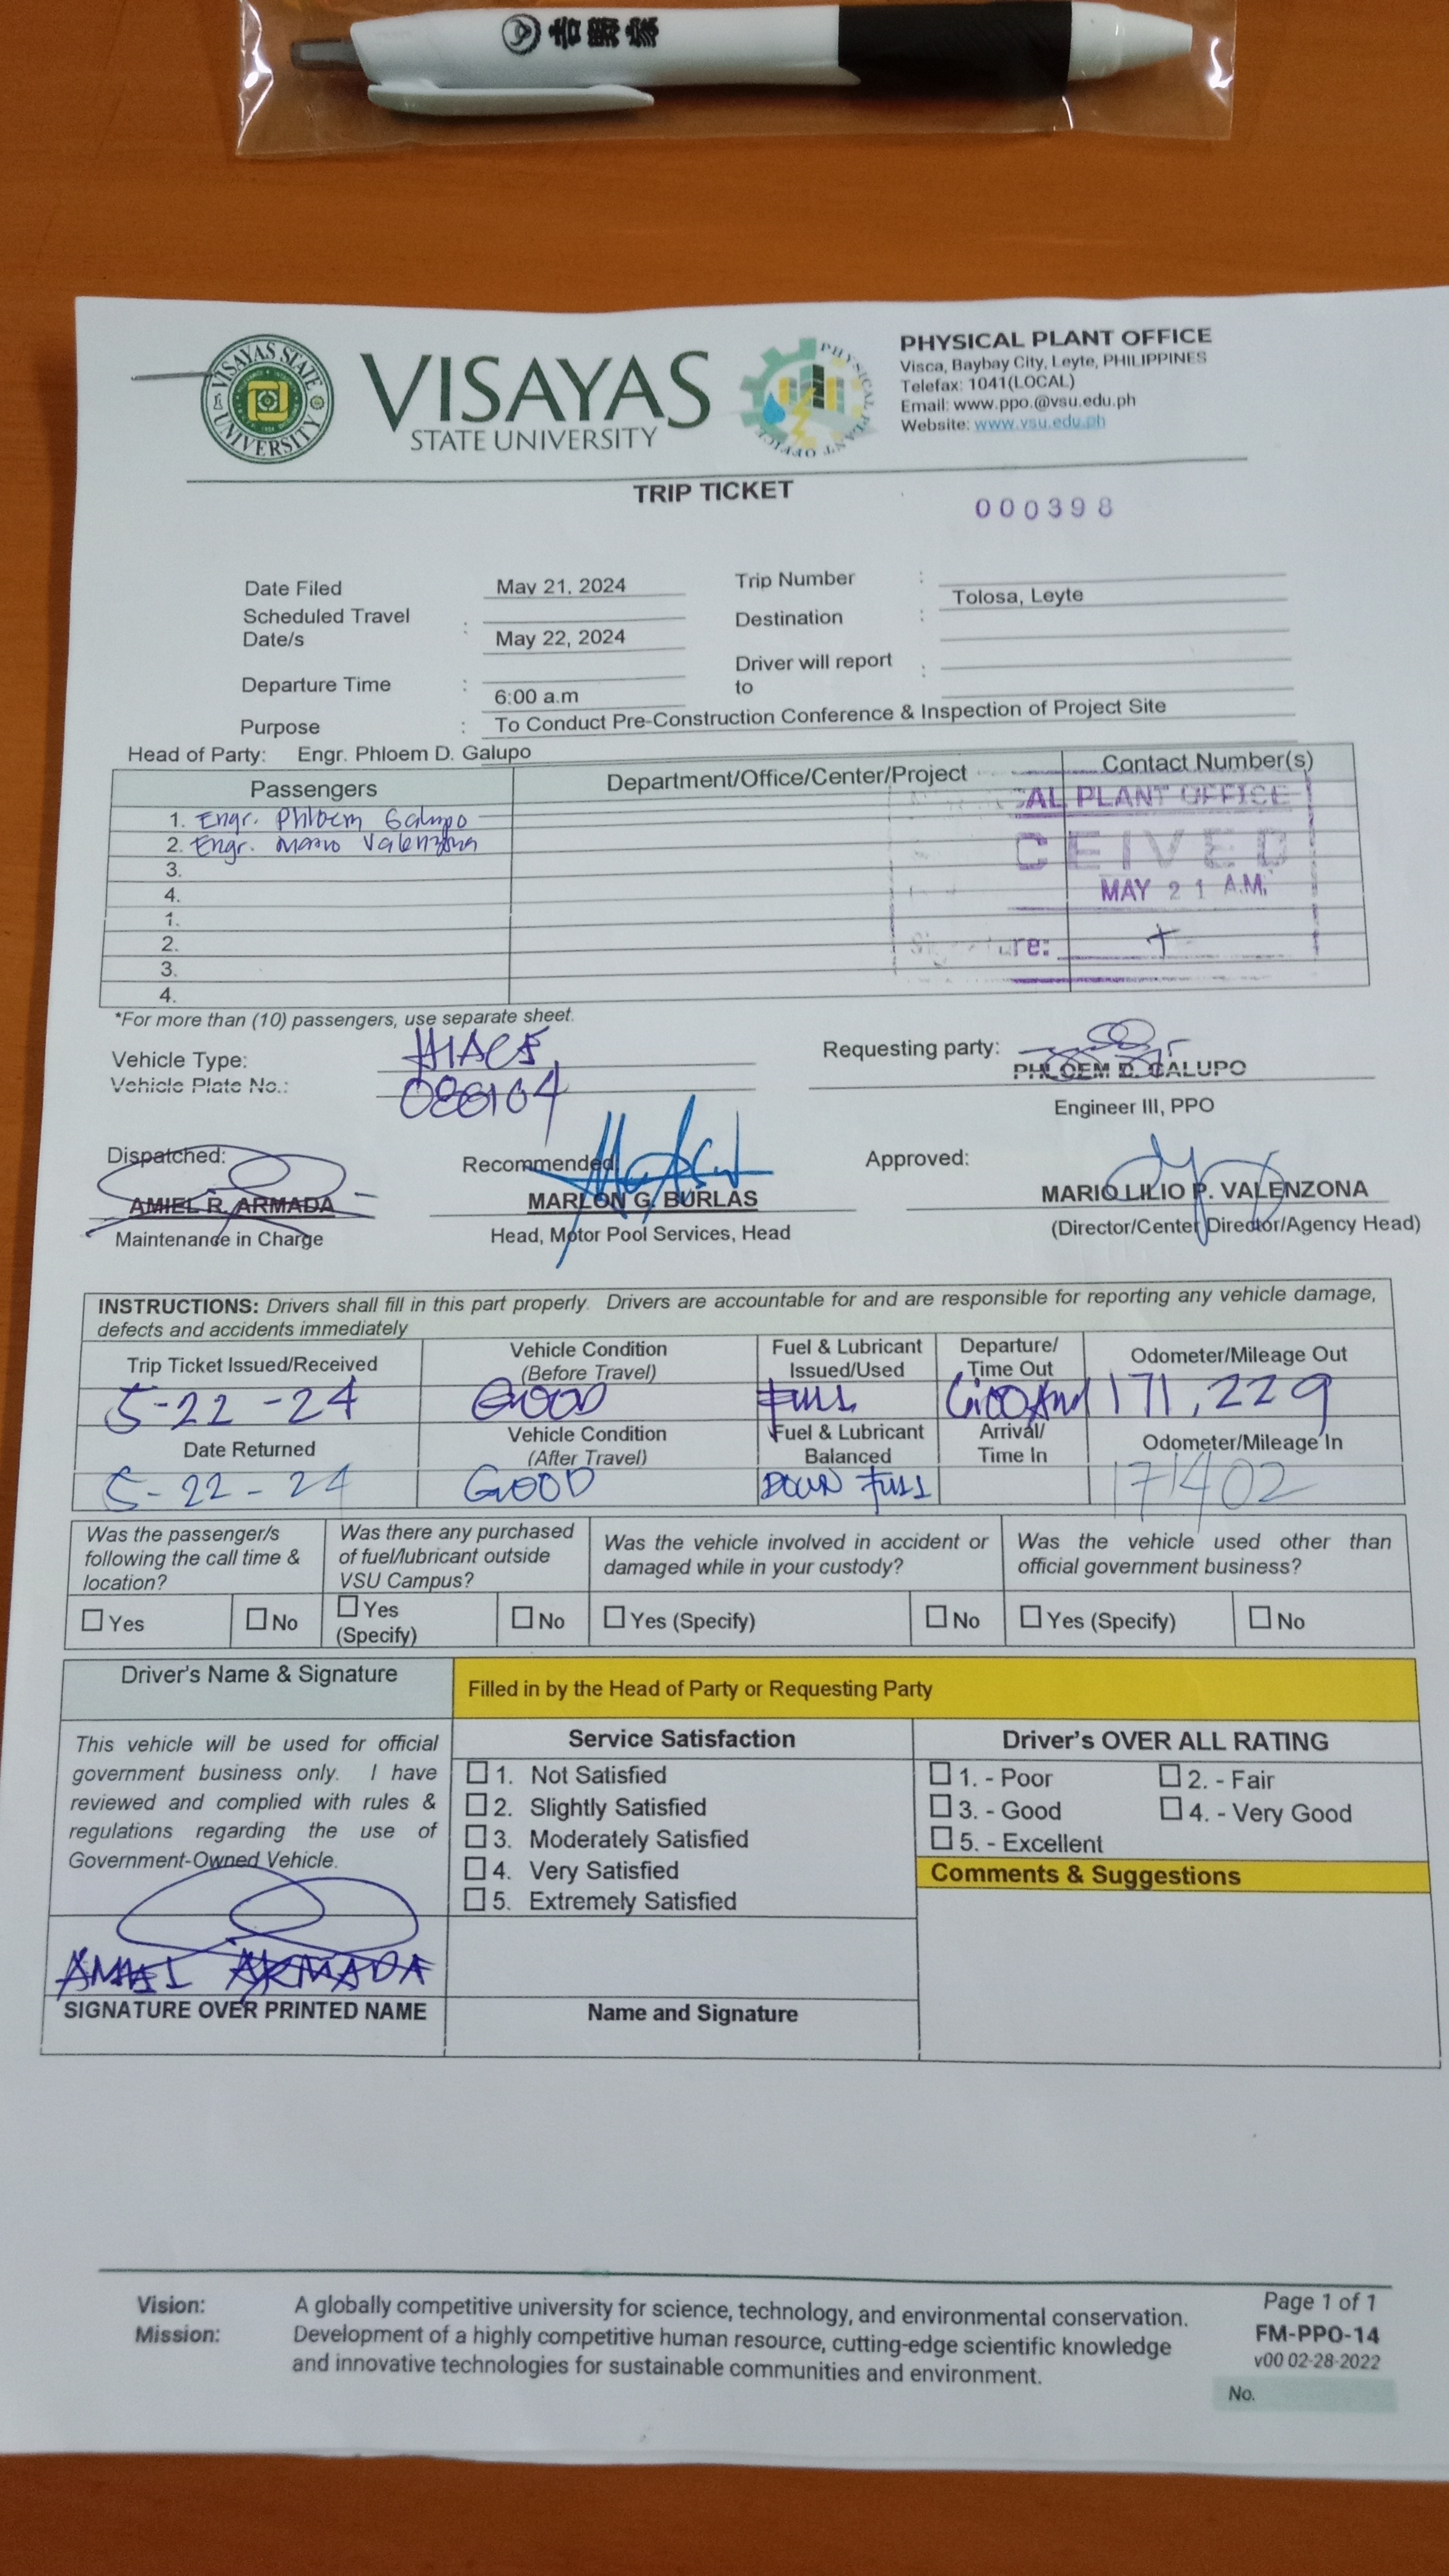 吉野家
VISAYAS STATE UNIVERSITY
VISAYAS
STATE UNIVERSITY
PHYSICAL PLANT OFFICE
PHYSICAL PLANT OFFICE
Visca, Baybay City, Leyte, PHILIPPINES
Telefax: 1041(LOCAL)
Email: www.ppo.@vsu.edu.ph
Website: www.vsu.edu.ph
TRIP TICKET
000398
Date Filed May 21, 2024 Trip Number :
Scheduled Travel Date/s : May 22, 2024 Destination : Tolosa, Leyte
Departure Time : 6:00 a.m Driver will report to :
Purpose : To Conduct Pre-Construction Conference & Inspection of Project Site
Head of Party: Engr. Phloem D. Galupo
Passengers Department/Office/Center/Project Contact Number(s)
1. Engr. Phloem Galupo
2. Engr. Mario Valenzona
3.
4.
1.
2.
3.
4.
AL PLANT OFFICE
CEIVED
MAY 21 A.M.
Signature:
*For more than (10) passengers, use separate sheet.
Vehicle Type: HIACE
Vehicle Plate No.:
Requesting party: PHLOEM D. GALUPO
Engineer III, PPO
Dispatched: Recommended: Approved:
AMIEL R. ARMADA MARLON G. BURLAS MARIO LILIO P. VALENZONA
Maintenance in Charge Head, Motor Pool Services, Head (Director/Center Director/Agency Head)
INSTRUCTIONS: Drivers shall fill in this part properly. Drivers are accountable for and are responsible for reporting any vehicle damage,
defects and accidents immediately
Trip Ticket Issued/Received Vehicle Condition (Before Travel) Fuel & Lubricant Issued/Used Departure/ Time Out Odometer/Mileage Out
5-22-24 GOOD FULL 6:00AM 171,229
Date Returned Vehicle Condition (After Travel) Fuel & Lubricant Balanced Arrival/ Time In Odometer/Mileage In
5-22-24 GOOD DOWN FULL 171402
Was the passenger/s following the call time & location? Was there any purchased of fuel/lubricant outside VSU Campus? Was the vehicle involved in accident or damaged while in your custody? Was the vehicle used other than official government business?
Yes No Yes (Specify) No Yes (Specify) No Yes (Specify) No
Driver's Name & Signature Filled in by the Head of Party or Requesting Party
This vehicle will be used for official
government business only. I have
reviewed and complied with rules &
regulations regarding the use of
Government-Owned Vehicle.
Service Satisfaction
1. Not Satisfied
2. Slightly Satisfied
3. Moderately Satisfied
4. Very Satisfied
5. Extremely Satisfied
Driver's OVER ALL RATING
1. - Poor 2. - Fair
3. - Good 4. - Very Good
5. - Excellent
Comments & Suggestions
ARMADA
SIGNATURE OVER PRINTED NAME Name and Signature
Vision: A globally competitive university for science, technology, and environmental conservation.
Mission: Development of a highly competitive human resource, cutting-edge scientific knowledge
and innovative technologies for sustainable communities and environment.
Page 1 of 1
FM-PPO-14
v00 02-28-2022
No.